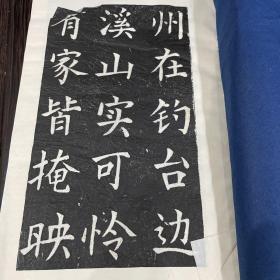 州在钓台边
溪山实可怜
有家皆掩映